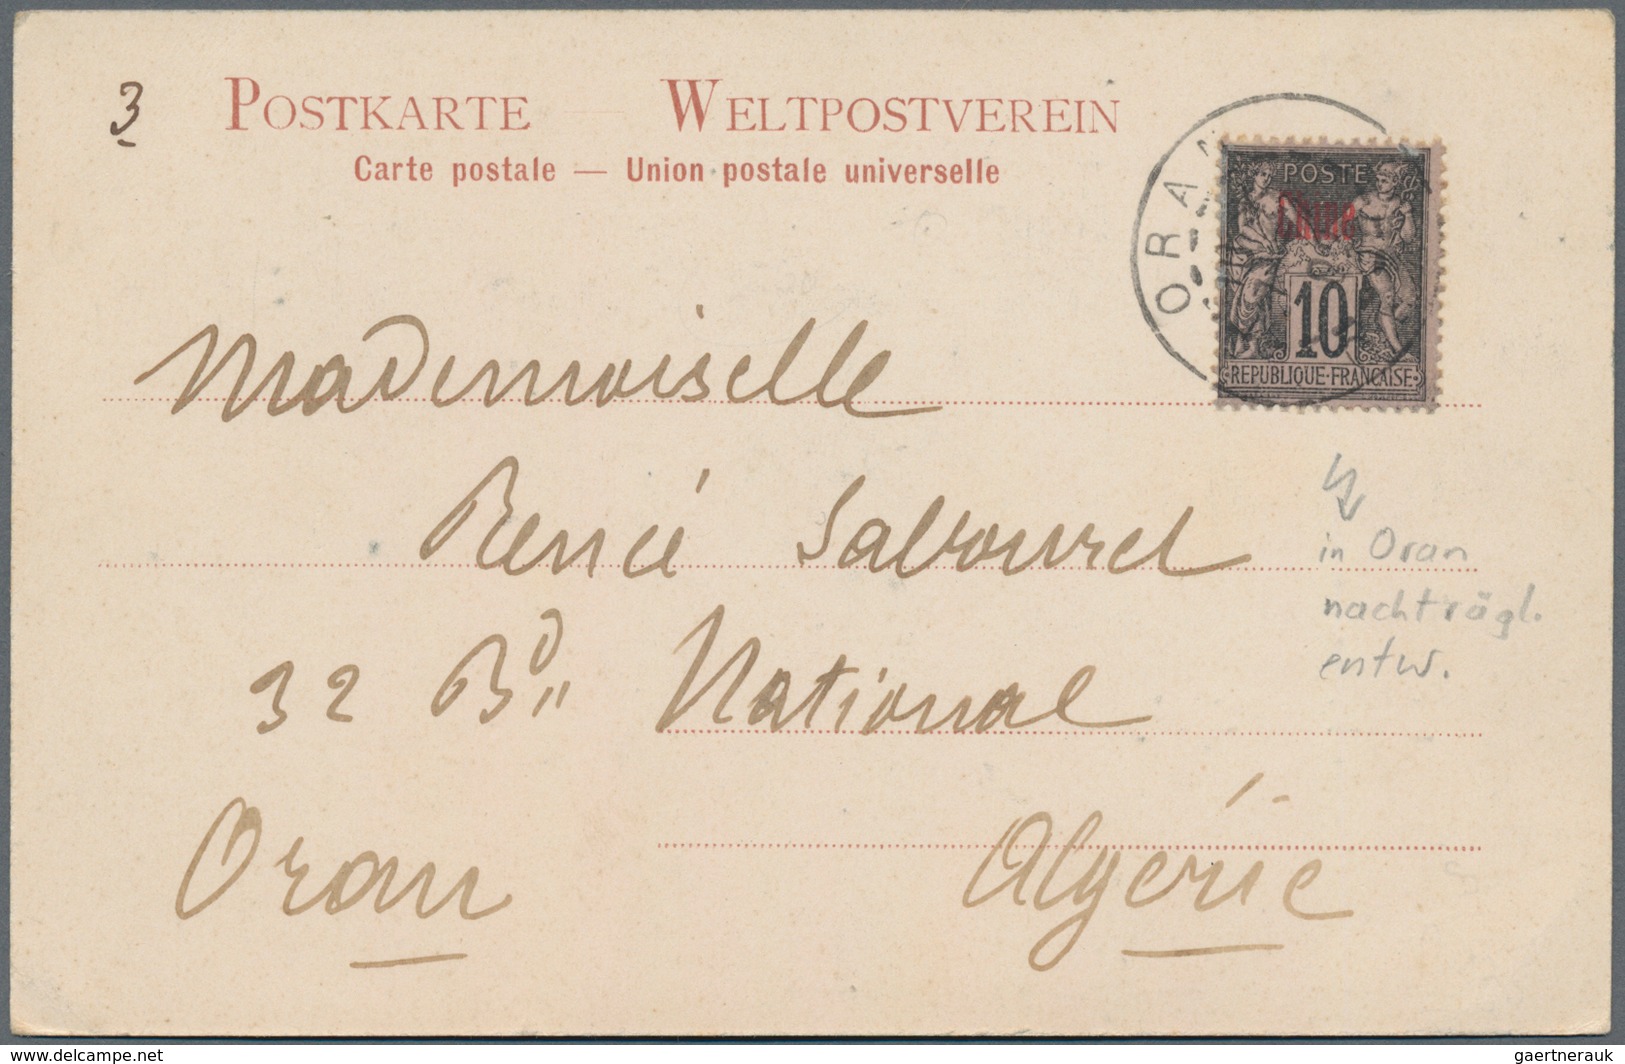 3 POSTKARTE WELTPOSTVEREIN
Carte postale — Union postale universelle
ORAN
POSTE
Chine
10
REPUBLIQUE·FRANÇAISE
Mademoiselle
René
32 Bd National
Oran Algérie
in Oran
nachträgl.
entw.
www.delcampe.net
gaertnerauk